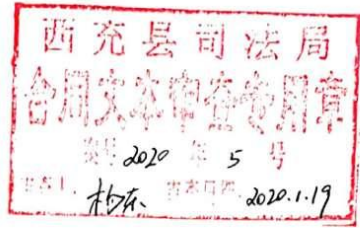 西充县司法局
合同文本审查专用章
编号 2020 年 5 号
审查人: 审查日期: 2020.1.19